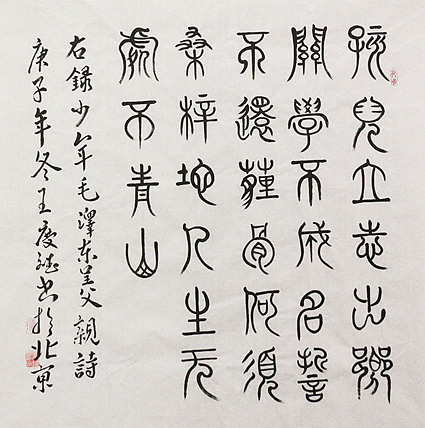 孩兒立志出鄉
關學不成名誓
不還薶骨何須
桑梓地人生无
處不青山
右錄少年毛澤东呈父親詩
庚子年冬王慶书於北京